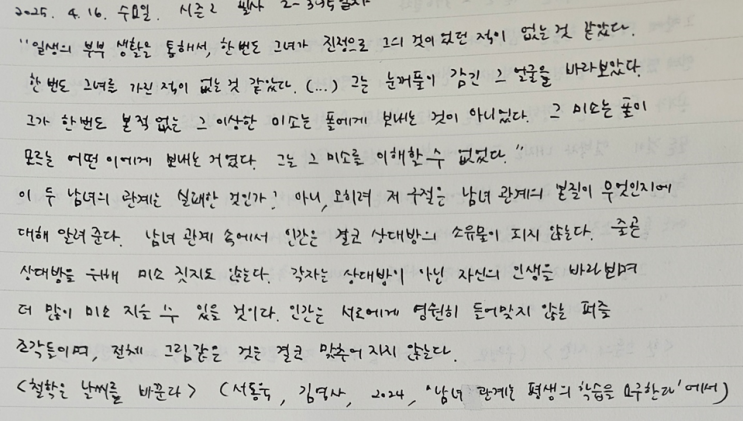 2025. 4. 16. 수요일. 시즌2 필사 2-395일차
"일생의 부부 생활을 통해서, 한번도 그녀가 진정으로 그의 것이었던 적이 없는 것 같았다.
한번도 그녀를 가진 적이 없는 것 같았다. (...) 그는 눈꺼풀이 감긴 그 얼굴을 바라보았다.
그가 한번도 본적 없는 그 이상한 미소는 폴에게 보내는 것이 아니었다. 그 미소는 폴이
모르는 어떤 이에게 보내는 거였다. 그는 그 미소를 이해할 수 없었다."
이 두 남녀의 관계는 실패한 것인가? 아니, 오히려 저 구절은 남녀 관계의 본질이 무엇인지에
대해 알려 준다. 남녀 관계 속에서 인간은 결코 상대방의 소유물이 되지 않는다. 줄곧
상대방을 위해 미소 짓지도 않는다. 각자는 상대방이 아닌 자신의 인생을 바라보며
더 많이 미소 지을 수 있을 것이다. 인간은 서로에게 영원히 들어맞지 않는 퍼즐
조각들이며, 전체 그림같은 것은 결코 맞추어 지지 않는다.
<철학은 날씨를 바꾼다> (서동욱, 김영사, 2024, '남녀 관계는 평생의 학습을 요구한다'에서)